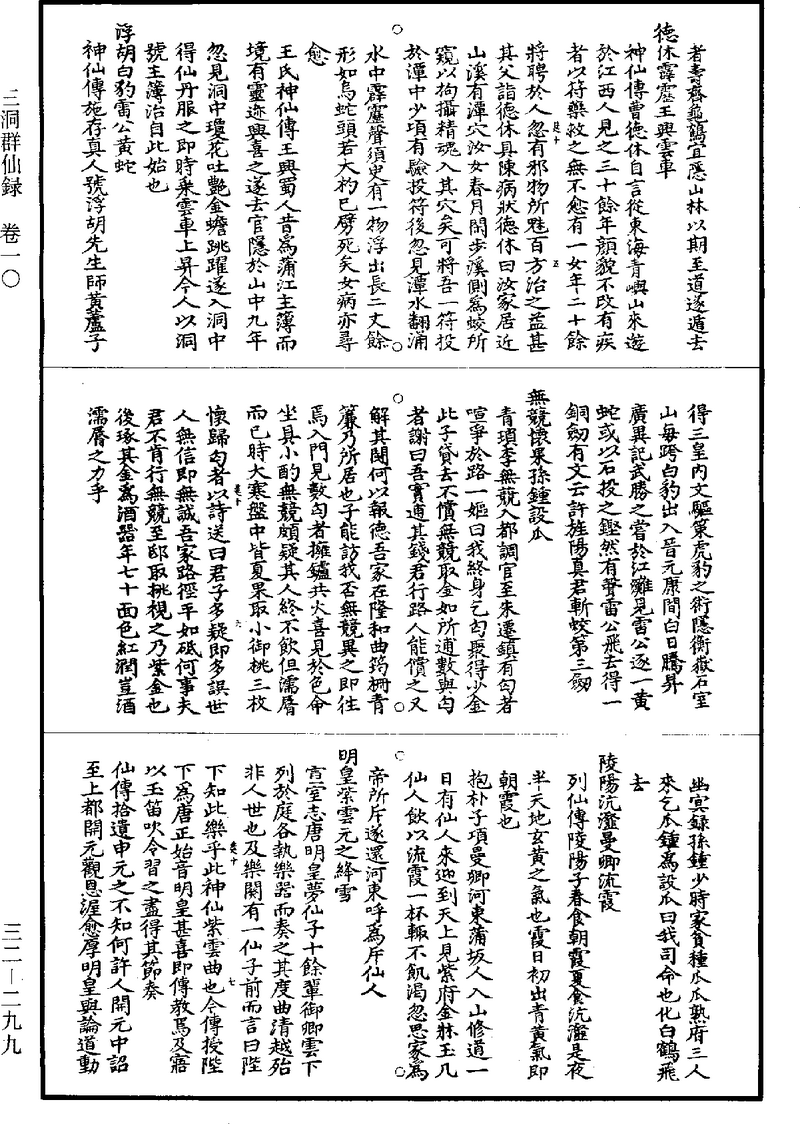 者壽齊龜鶴宜隱山林以期至道遂遁去
德休霹靂王興雲車
神仙傳曹德休自言從東海青嶼山來遊
於江西人見之三十餘年顏貌不改有疾
者以符藥救之無不愈有一女年二十餘
將聘於人忽有邪物所魅百方治之益甚
其父詣德休具陳病狀德休曰汝家居近
山溪有潭穴汝女春月閒步溪側為蛟所
窺以拘攝精魂入其穴矣可將吾一符投
於潭中少頃有驗投符後忽見潭水翻涌
水中霹靂聲須臾有一物浮出長二丈餘
形如烏蛇頭若大杓已劈死矣女病亦尋
愈
王氏神仙傳王興蜀人昔為蒲江主簿而
境有靈迹興喜之遂去官隱於山中九年
忽見洞中瓊花吐艷金蟾跳躍遂入洞中
得仙丹服之即時乘雲車上昇今人以洞
號主簿治自此始也
浮胡白豹雷公黃蛇
神仙傳施存真人號浮胡先生師黃蘆子
得三皇內文驅策虎豹之術隱衡嶽石室
山每跨白豹出入晉元康間白日騰昇
廣異記武勝之嘗於江灘見雷公逐一黃
蛇或以石投之鏗然有聲雷公飛去得一
銅劒有文云許旌陽真君斬蛟第三劒
無競懷果孫鍾設瓜
青瑣李無競入都調官至朱遷鎮有匄者
喧爭於路一嫗曰我終身乞匄聚得少金
此子貸去不償無競取金如所逋數與匄
者謝曰吾實逋其錢君行路人能償之又
解其鬩何以報德吾家在隆和曲筠柵青
簾乃所居也子能訪我否無競異之即往
焉入門見數匄者擁鑪共火喜見於色命
坐具小酌無競頗疑其人終不飲但濡脣
而已時大寒盤中皆夏果取小御桃三枚
懷歸匄者以詩送曰君子多疑即多誤世
人無信即無誠吾家路徑平如砥何事夫
君不肯行無競至邸取桃視之乃紫金也
後琢其金為酒器年七十面色紅潤豈酒
濡脣之力乎
幽冥錄孫鍾少時家貧種瓜瓜熟府三人
來乞瓜鍾為設瓜曰我司命也化白鶴飛
去
陵陽沆瀣曼卿流霞
列仙傳陵陽子春食朝霞夏食沆瀣是夜
半天地玄黃之氣也霞日初出青黃氣即
朝霞也
抱朴子項曼卿河東蒲坂人入山修道一
日有仙人來迎到天上見紫府金牀玉几
仙人飲以流霞一杯輒不飢渴忽思家為
帝所斥遂還河東呼為斥仙人
明皇紫雲元之絳雪
宣室志唐明皇夢仙子十餘輩御卿雲下
列於庭各執樂器而奏之其度曲清越殆
非人世也及樂闋有一仙子前而言曰陛
下知此樂乎此神仙紫雲曲也今傳授陛
下為唐正始音明皇甚喜即傳教焉及寤
以玉笛吹令習之盡得其節奏
仙傳拾遺申元之不知何許人開元中詔
至上都開元觀恩渥愈厚明皇與論道動
三洞群仙録　卷一〇
三二—二九九